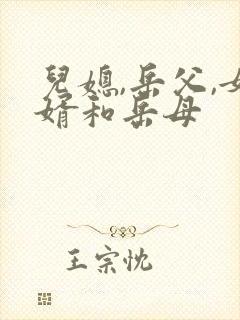 兒媳,岳父,女
婿和岳母
王宗忱